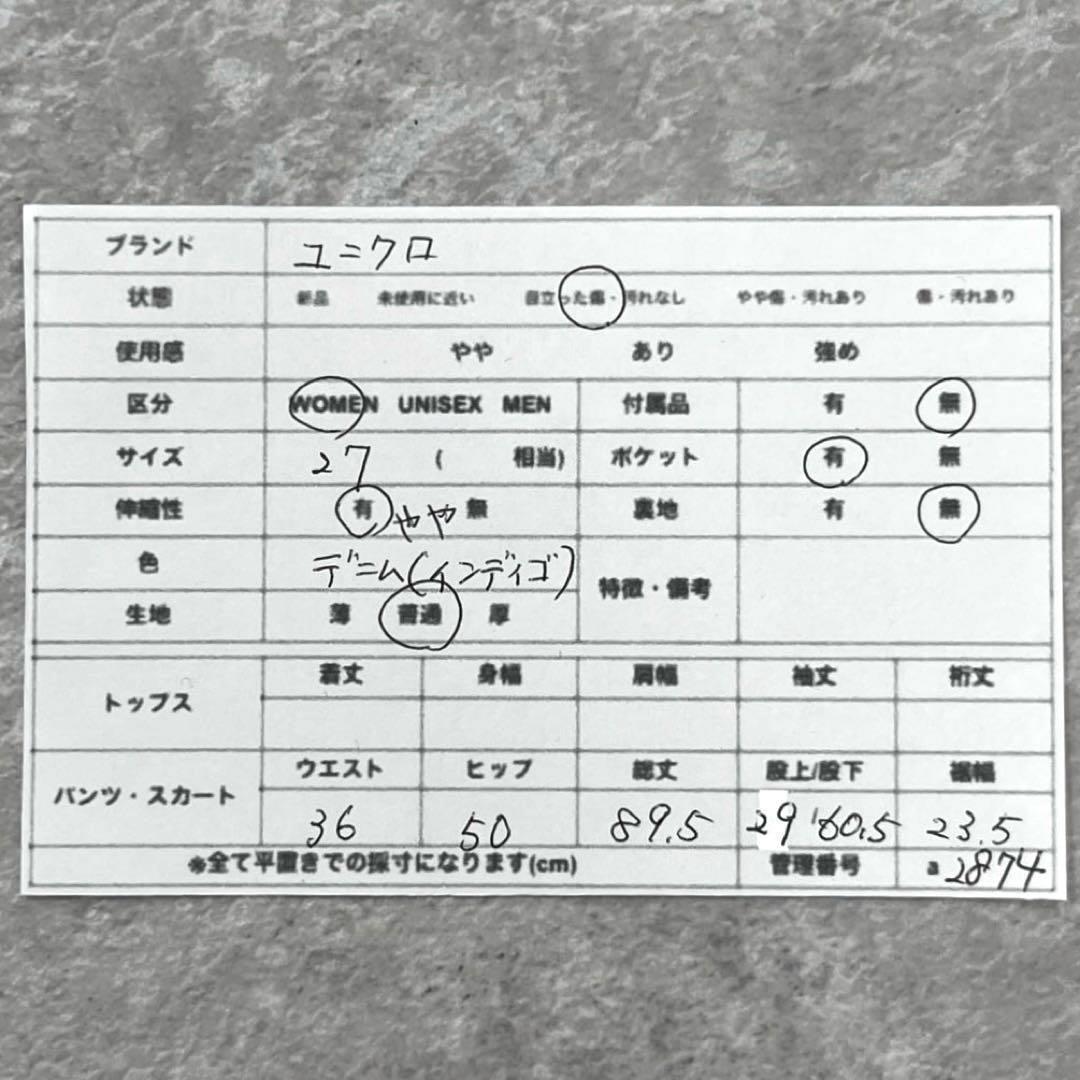 ブランド ユニクロ
状態 新品 未使用に近い 目立った傷・汚れなし やや傷・汚れあり 傷・汚れあり
使用感 やや あり 強め
区分 WOMEN UNISEX MEN 付属品 有 無
サイズ 27 ( 相当) ポケット 有 無
伸縮性 有 やや 無 裏地 有 無
色 デニム(インディゴ) 特徴・備考
生地 薄 普通 厚
トップス 着丈 身幅 肩幅 袖丈 裄丈
パンツ・スカート ウエスト ヒップ 総丈 股上/股下 裾幅
36 50 89.5 29/60.5 23.5
※全て平置きでの採寸になります(cm) 管理番号 a 2874